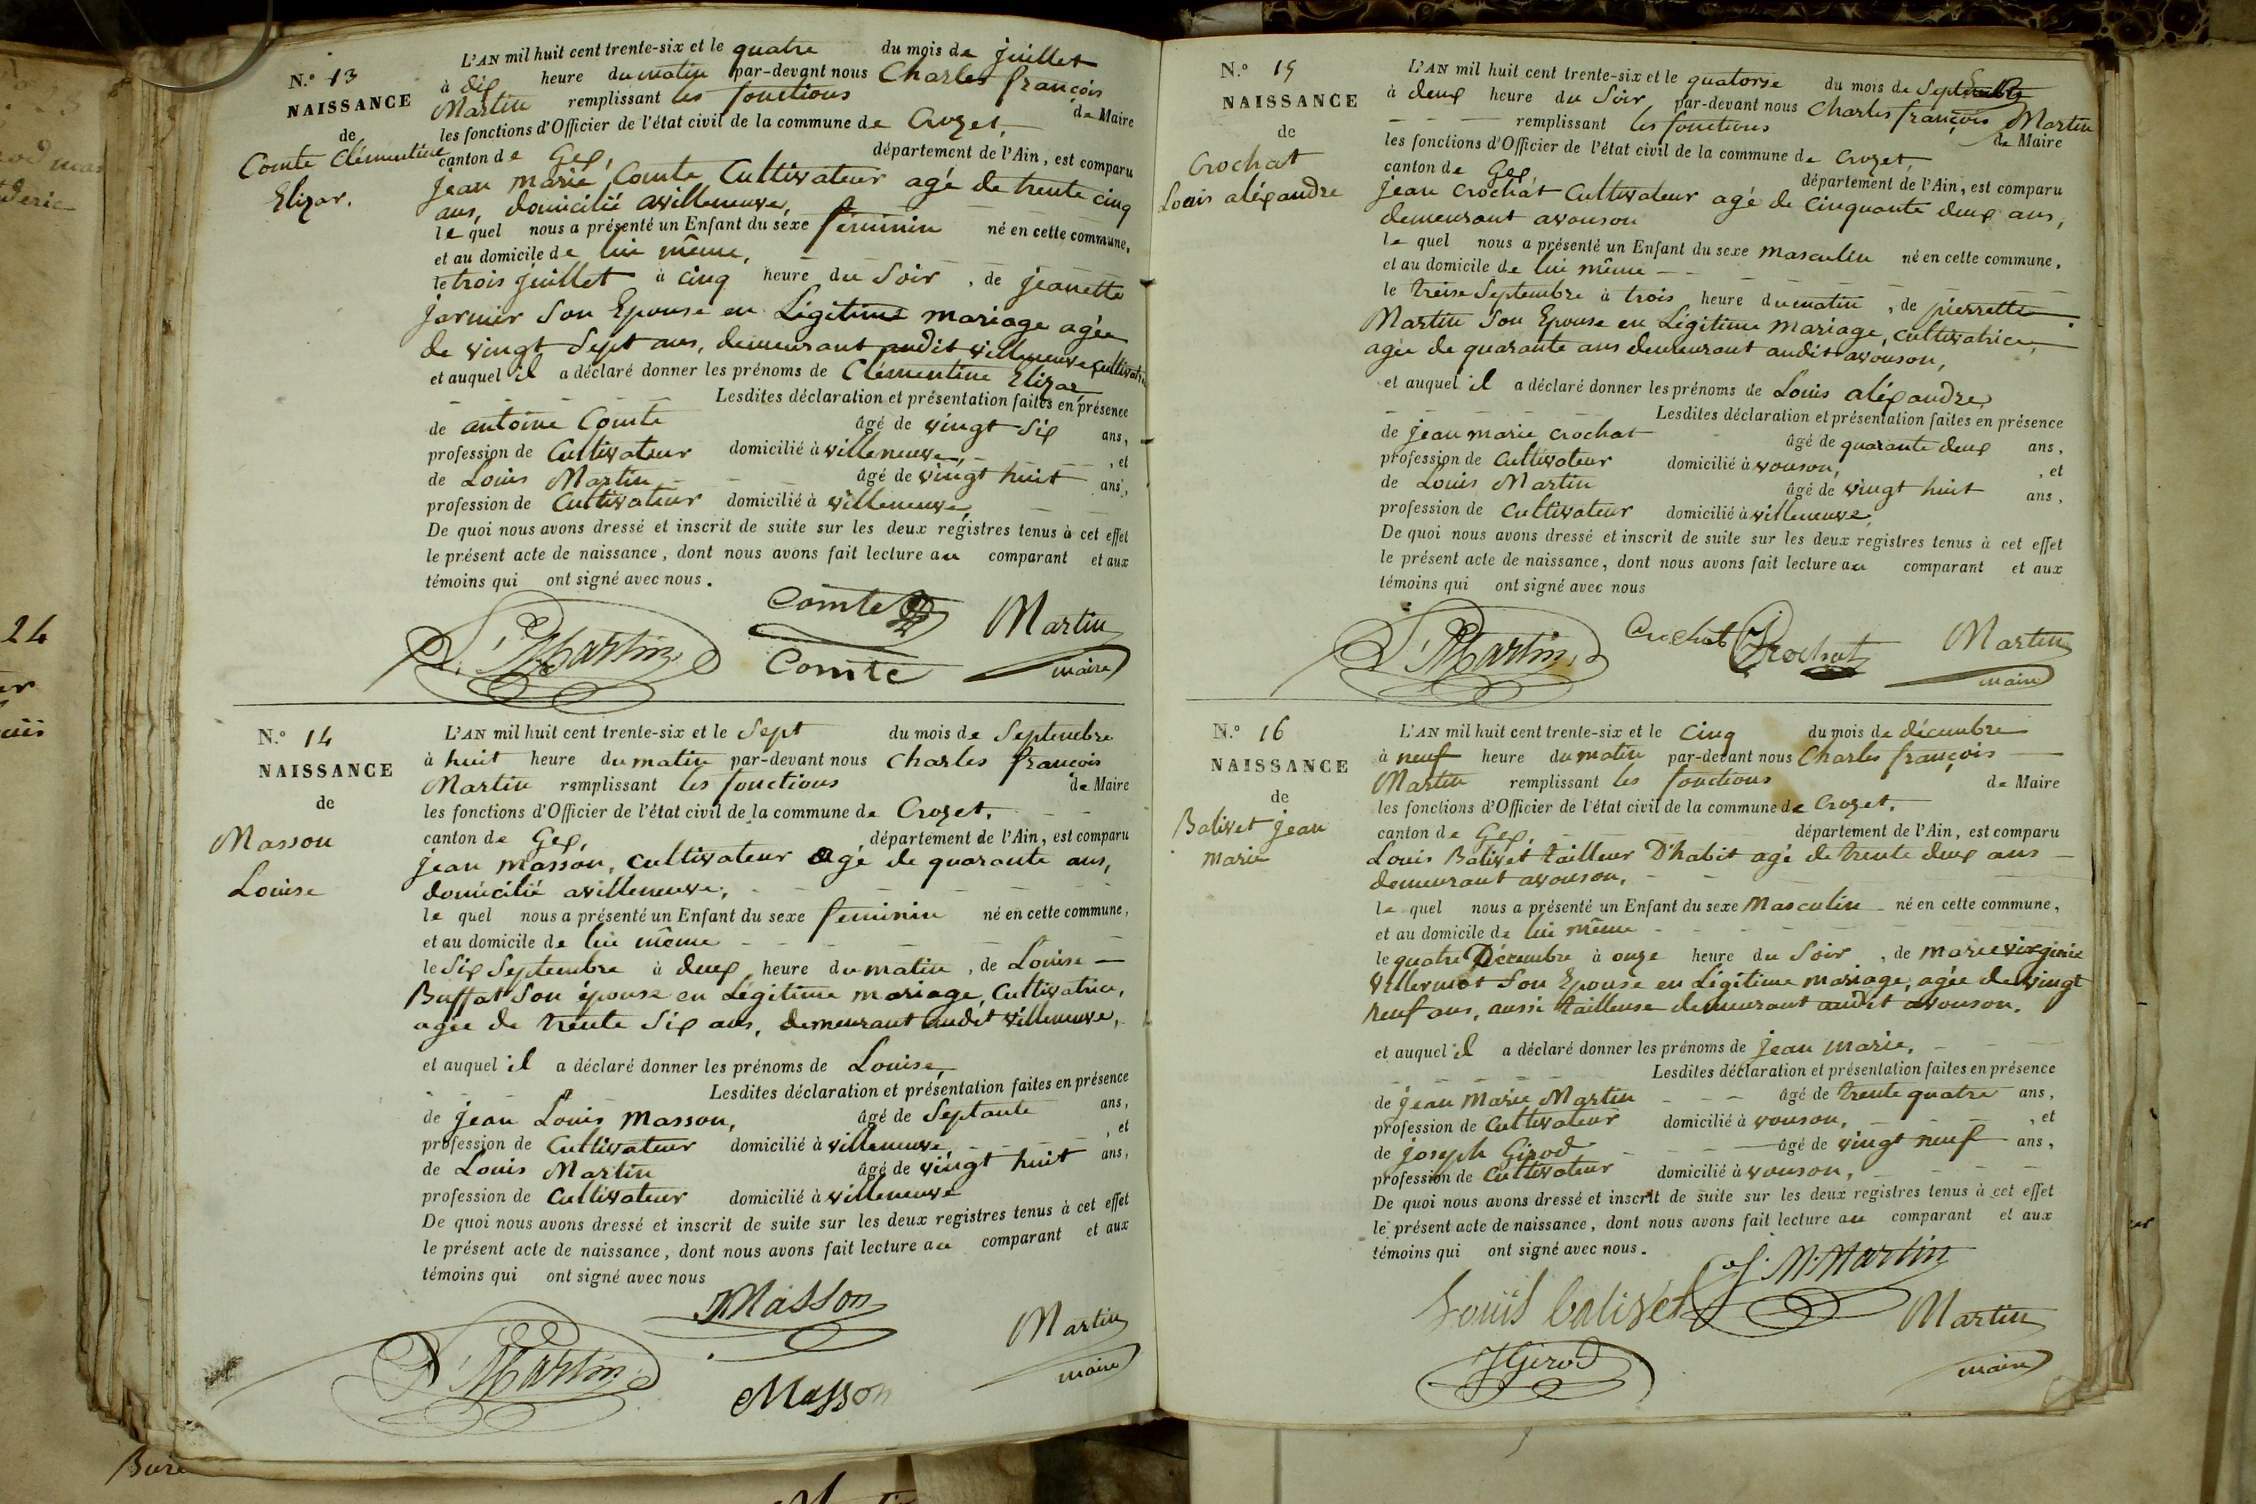 N.° 13
NAISSANCE
de
Comte Clémentine
Elizar.
L'AN mil huit cent trente-six et le quatre du mois de juillet
à dix heure du matin par-devant nous Charles françois
Martin remplissant les fonctions de Maire
les fonctions d'Officier de l'état civil de la commune de Crozet,
canton de Gex, département de l'Ain, est comparu
jean marie Comte Cultivateur agé de trente cinq
ans, domicilié avilleneuve,
le quel nous a présenté un Enfant du sexe féminin né en cette commune,
et au domicile de lui même,
le trois juillet à cinq heure du Soir, de jeanette
jarnier Son Epouse en Légitime mariage agée
de vingt Sept ans, demeurant audit villeneuve, cultivatrice
et auquel il a déclaré donner les prénoms de Clémentine Elizar
Lesdites déclaration et présentation faites en présence
de antoine Comte âgé de vingt Six ans,
profession de Cultivateur domicilié à villeneuve, et
de Louis Martin âgé de vingt huit ans,
profession de Cultivateur domicilié à villeneuve,
De quoi nous avons dressé et inscrit de suite sur les deux registres tenus à cet effet
le présent acte de naissance, dont nous avons fait lecture au comparant et aux
témoins qui ont signé avec nous.
Comte
Martin
L. Martin
Comte
maire
N.° 14
NAISSANCE
de
Masson
Louise
L'AN mil huit cent trente-six et le Sept du mois de Septembre
à huit heure du matin par-devant nous Charles françois
Martin remplissant les fonctions de Maire
les fonctions d'Officier de l'état civil de la commune de Crozet,
canton de Gex, département de l'Ain, est comparu
jean masson, cultivateur agé de quarante ans,
domicilié avilleneuve,
le quel nous a présenté un Enfant du sexe féminin né en cette commune,
et au domicile de lui même
le Six Septembre à deux heure du matin, de Louise
Buffat Son épouse en Légitime mariage, Cultivatrice,
agée de trente Six ans, demeurant audit villeneuve,
et auquel il a déclaré donner les prénoms de Louise,
Lesdites déclaration et présentation faites en présence
de jean Louis masson, âgé de Septante ans,
profession de Cultivateur domicilié à villeneuve, et
de Louis Martin âgé de vingt huit ans,
profession de Cultivateur domicilié à villeneuve
De quoi nous avons dressé et inscrit de suite sur les deux registres tenus à cet effet
le présent acte de naissance, dont nous avons fait lecture au comparant et aux
témoins qui ont signé avec nous
Masson
Martin
L. Martin
maire
Masson
N.° 15
NAISSANCE
de
Crochat
Louis aléxandre
L'AN mil huit cent trente-six et le quatorse du mois de Septembre
à deux heure du Soir par-devant nous Charles françois Martin
remplissant les fonctions de Maire
les fonctions d'Officier de l'état civil de la commune de Crozet,
canton de Gex, département de l'Ain, est comparu
jean Crochat Cultivateur agé de cinquante deux ans,
demeurant avouson
le quel nous a présenté un Enfant du sexe masculin né en cette commune,
et au domicile de lui même
le treise Septembre à trois heure du matin, de pierrette
Martin Son Epouse en Légitime mariage, cultivatrice,
agée de quarante ans demeurant audit avouson,
et auquel il a déclaré donner les prénoms de Louis aléxandre,
Lesdites déclaration et présentation faites en présence
de jean marie crochat âgé de quarante deux ans,
profession de cultivateur domicilié à vouson, et
de Louis Martin âgé de vingt huit ans,
profession de cultivateur domicilié à villeneuve,
De quoi nous avons dressé et inscrit de suite sur les deux registres tenus à cet effet
le présent acte de naissance, dont nous avons fait lecture au comparant et aux
témoins qui ont signé avec nous
L. Martin
Crochat
Crochat
Martin
maire
N.° 16
NAISSANCE
de
Balivet jean
marie
L'AN mil huit cent trente-six et le cinq du mois de décembre
à neuf heure du matin par-devant nous Charles françois
Martin remplissant les fonctions de Maire
les fonctions d'Officier de l'état civil de la commune de Crozet,
canton de Gex, département de l'Ain, est comparu
Louis Balivet tailleur D'habit agé de trente deux ans
demeurant avouson,
le quel nous a présenté un Enfant du sexe Masculin né en cette commune,
et au domicile de lui même
le quatre Décembre à onze heure du Soir, de marie virginie
Vuillermot Son Epouse en Légitime mariage, agée de vingt
neuf ans, aussi tailleuse demeurant audit avouson.
et auquel il a déclaré donner les prénoms de jean marie,
Lesdites déclaration et présentation faites en présence
de jean marie Martin âgé de trente quatre ans,
profession de cultivateur domicilié à vouson, et
de joseph Girod âgé de vingt neuf ans,
profession de cultivateur domicilié à vouson,
De quoi nous avons dressé et inscrit de suite sur les deux registres tenus à cet effet
le présent acte de naissance, dont nous avons fait lecture au comparant et aux
témoins qui ont signé avec nous.
J. M. Martin
Louis balivet
Martin
JGirod
maire
24